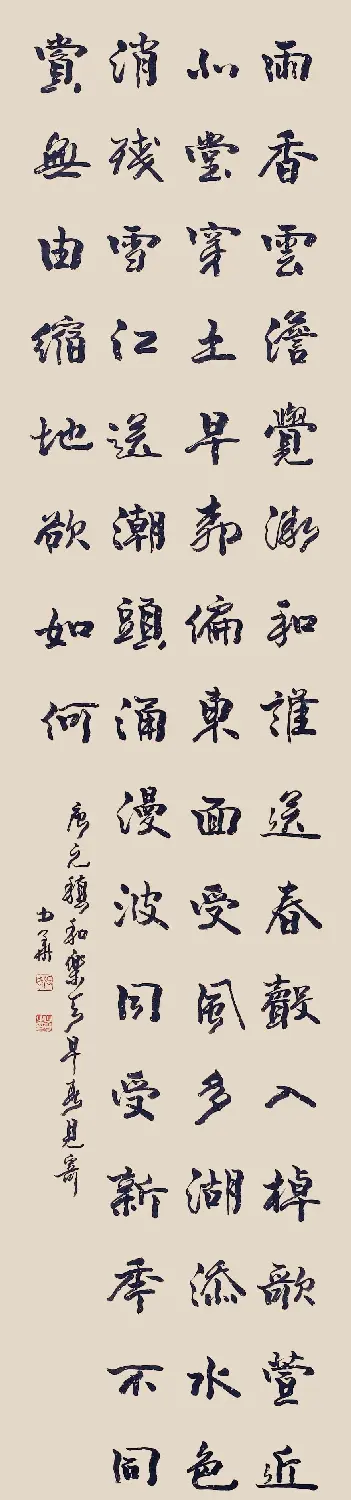 雨香雲澹覺微和誰送春聲入棹歌萱近
北堂穿土早柳偏東面受風多湖添水色
消残雪江送潮頭涌漫波同受新年不同
賞無由縮地欲如何
唐元稹和樂天早春見寄